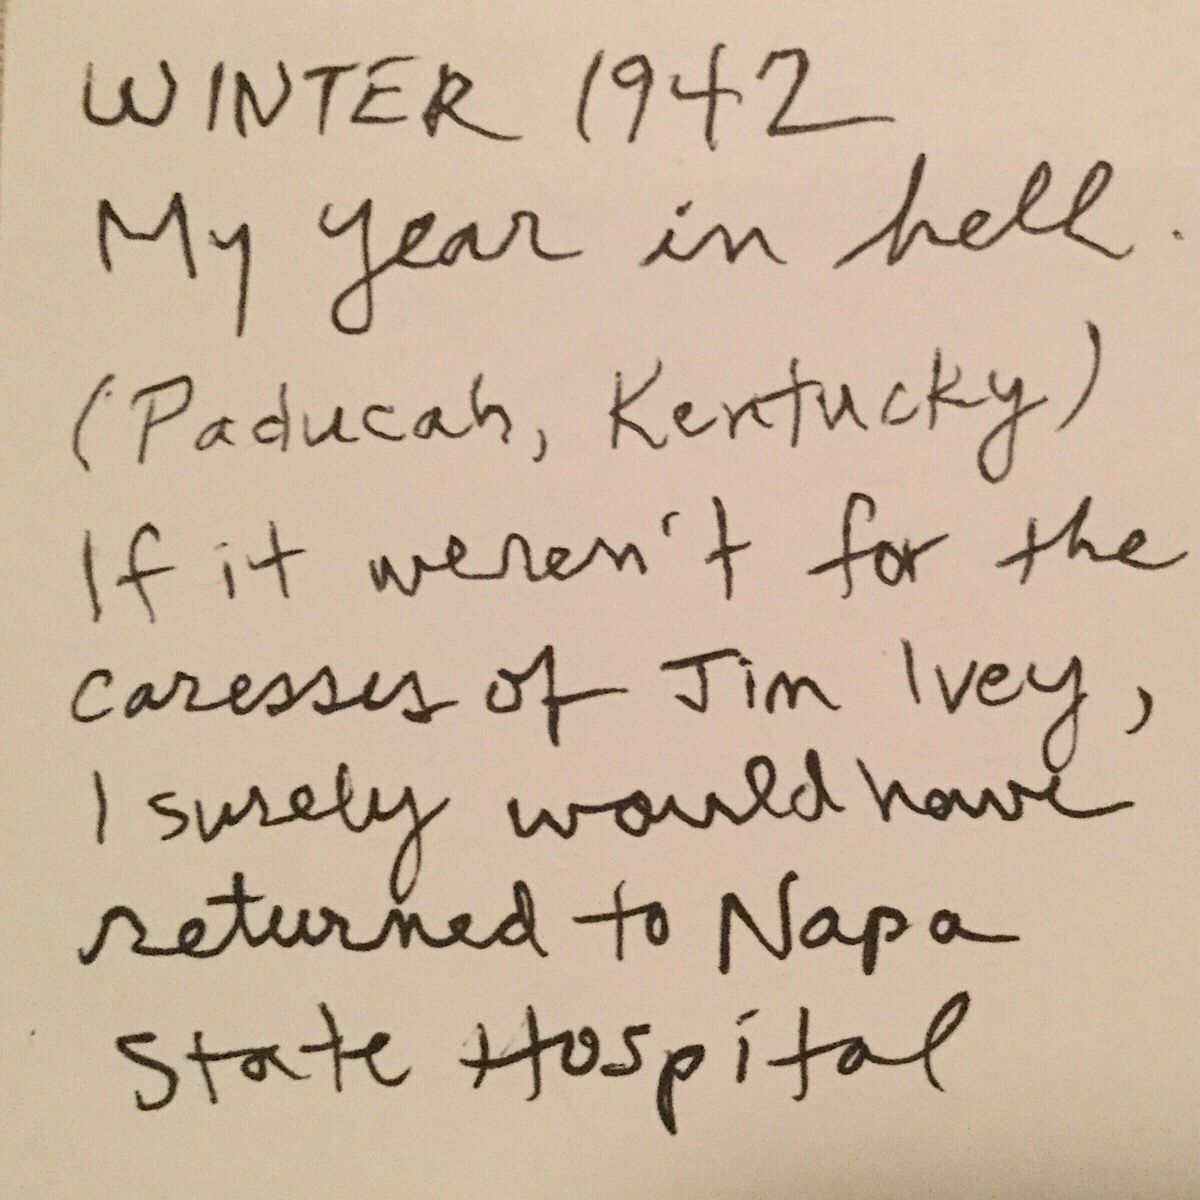 WINTER 1942
My year in hell.
(Paducah, Kentucky)
If it weren't for the
caresses of Jim Ivey,
I surely would have
returned to Napa
State Hospital